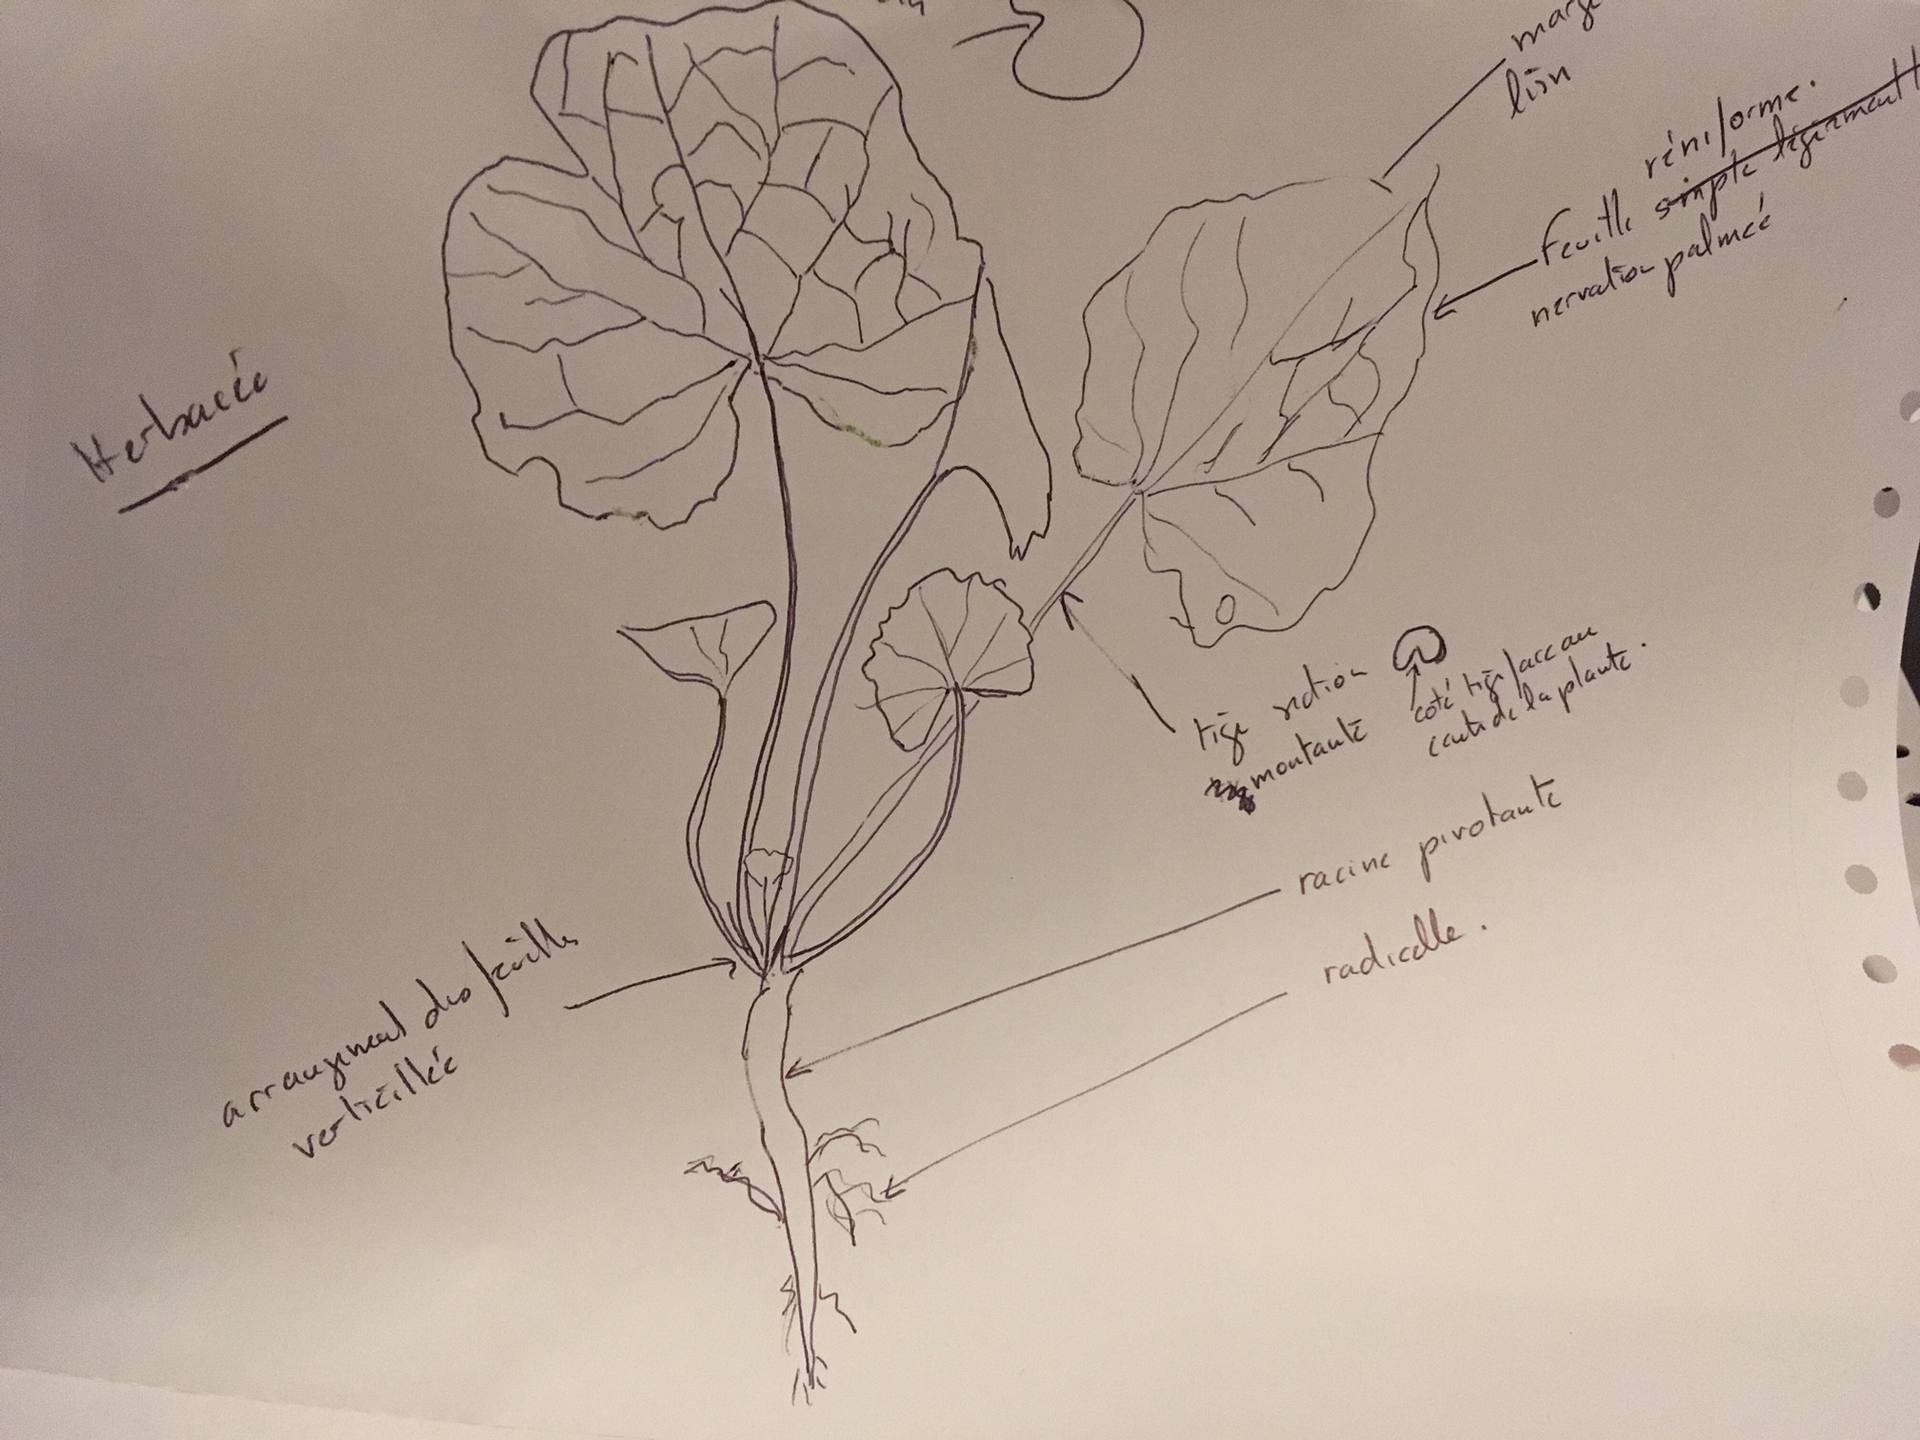 marg
réniforme.
Feuille simple légèrement
nervation palmée
Herbacée
tige section
montante
coté tige/arc au
centre de la plante.
racine pivotante
radicelle.
arrangement des feuilles
verticillée